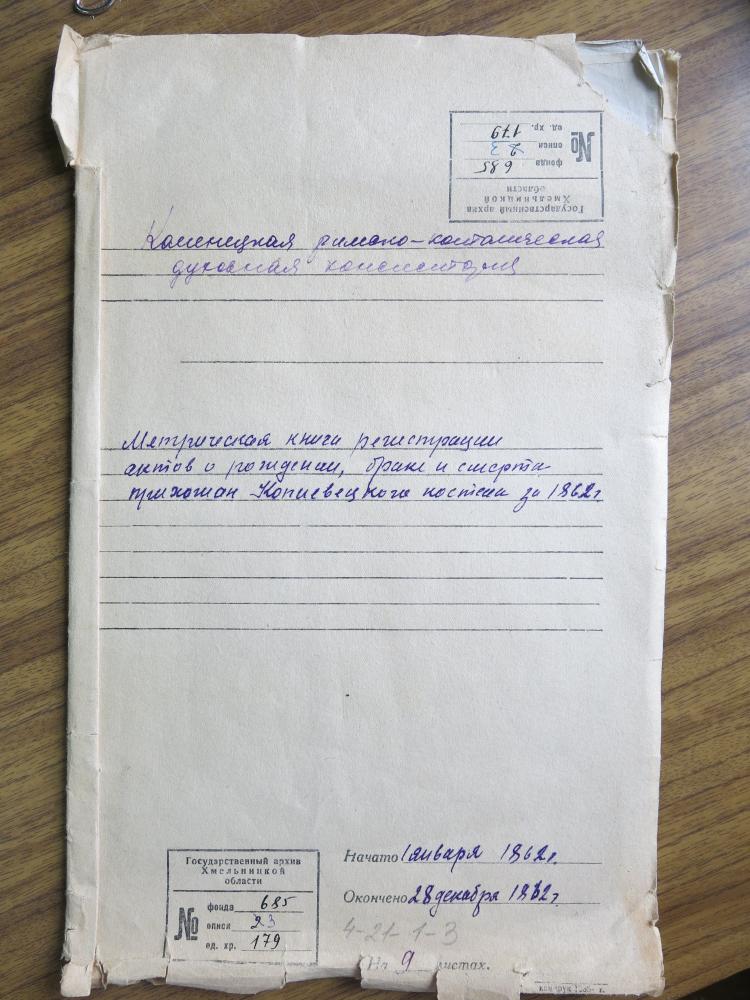 Государственный архив
Хмельницкой
области
№
фонда 685
описи 23
ед. хр. 179
Каменецкая римско-католическая
духовная консистория
Метрическая книга регистрации
актов о рождении, браке и смерти
прихожан Копиевецкого костела за 1862 г.
Государственный архив
Хмельницкой
области
№
фонда 685
описи 23
ед. хр. 179
Начато 1 января 1862 г.
Окончено 28 декабря 1862 г.
4-21-1-3
На 9 листах.